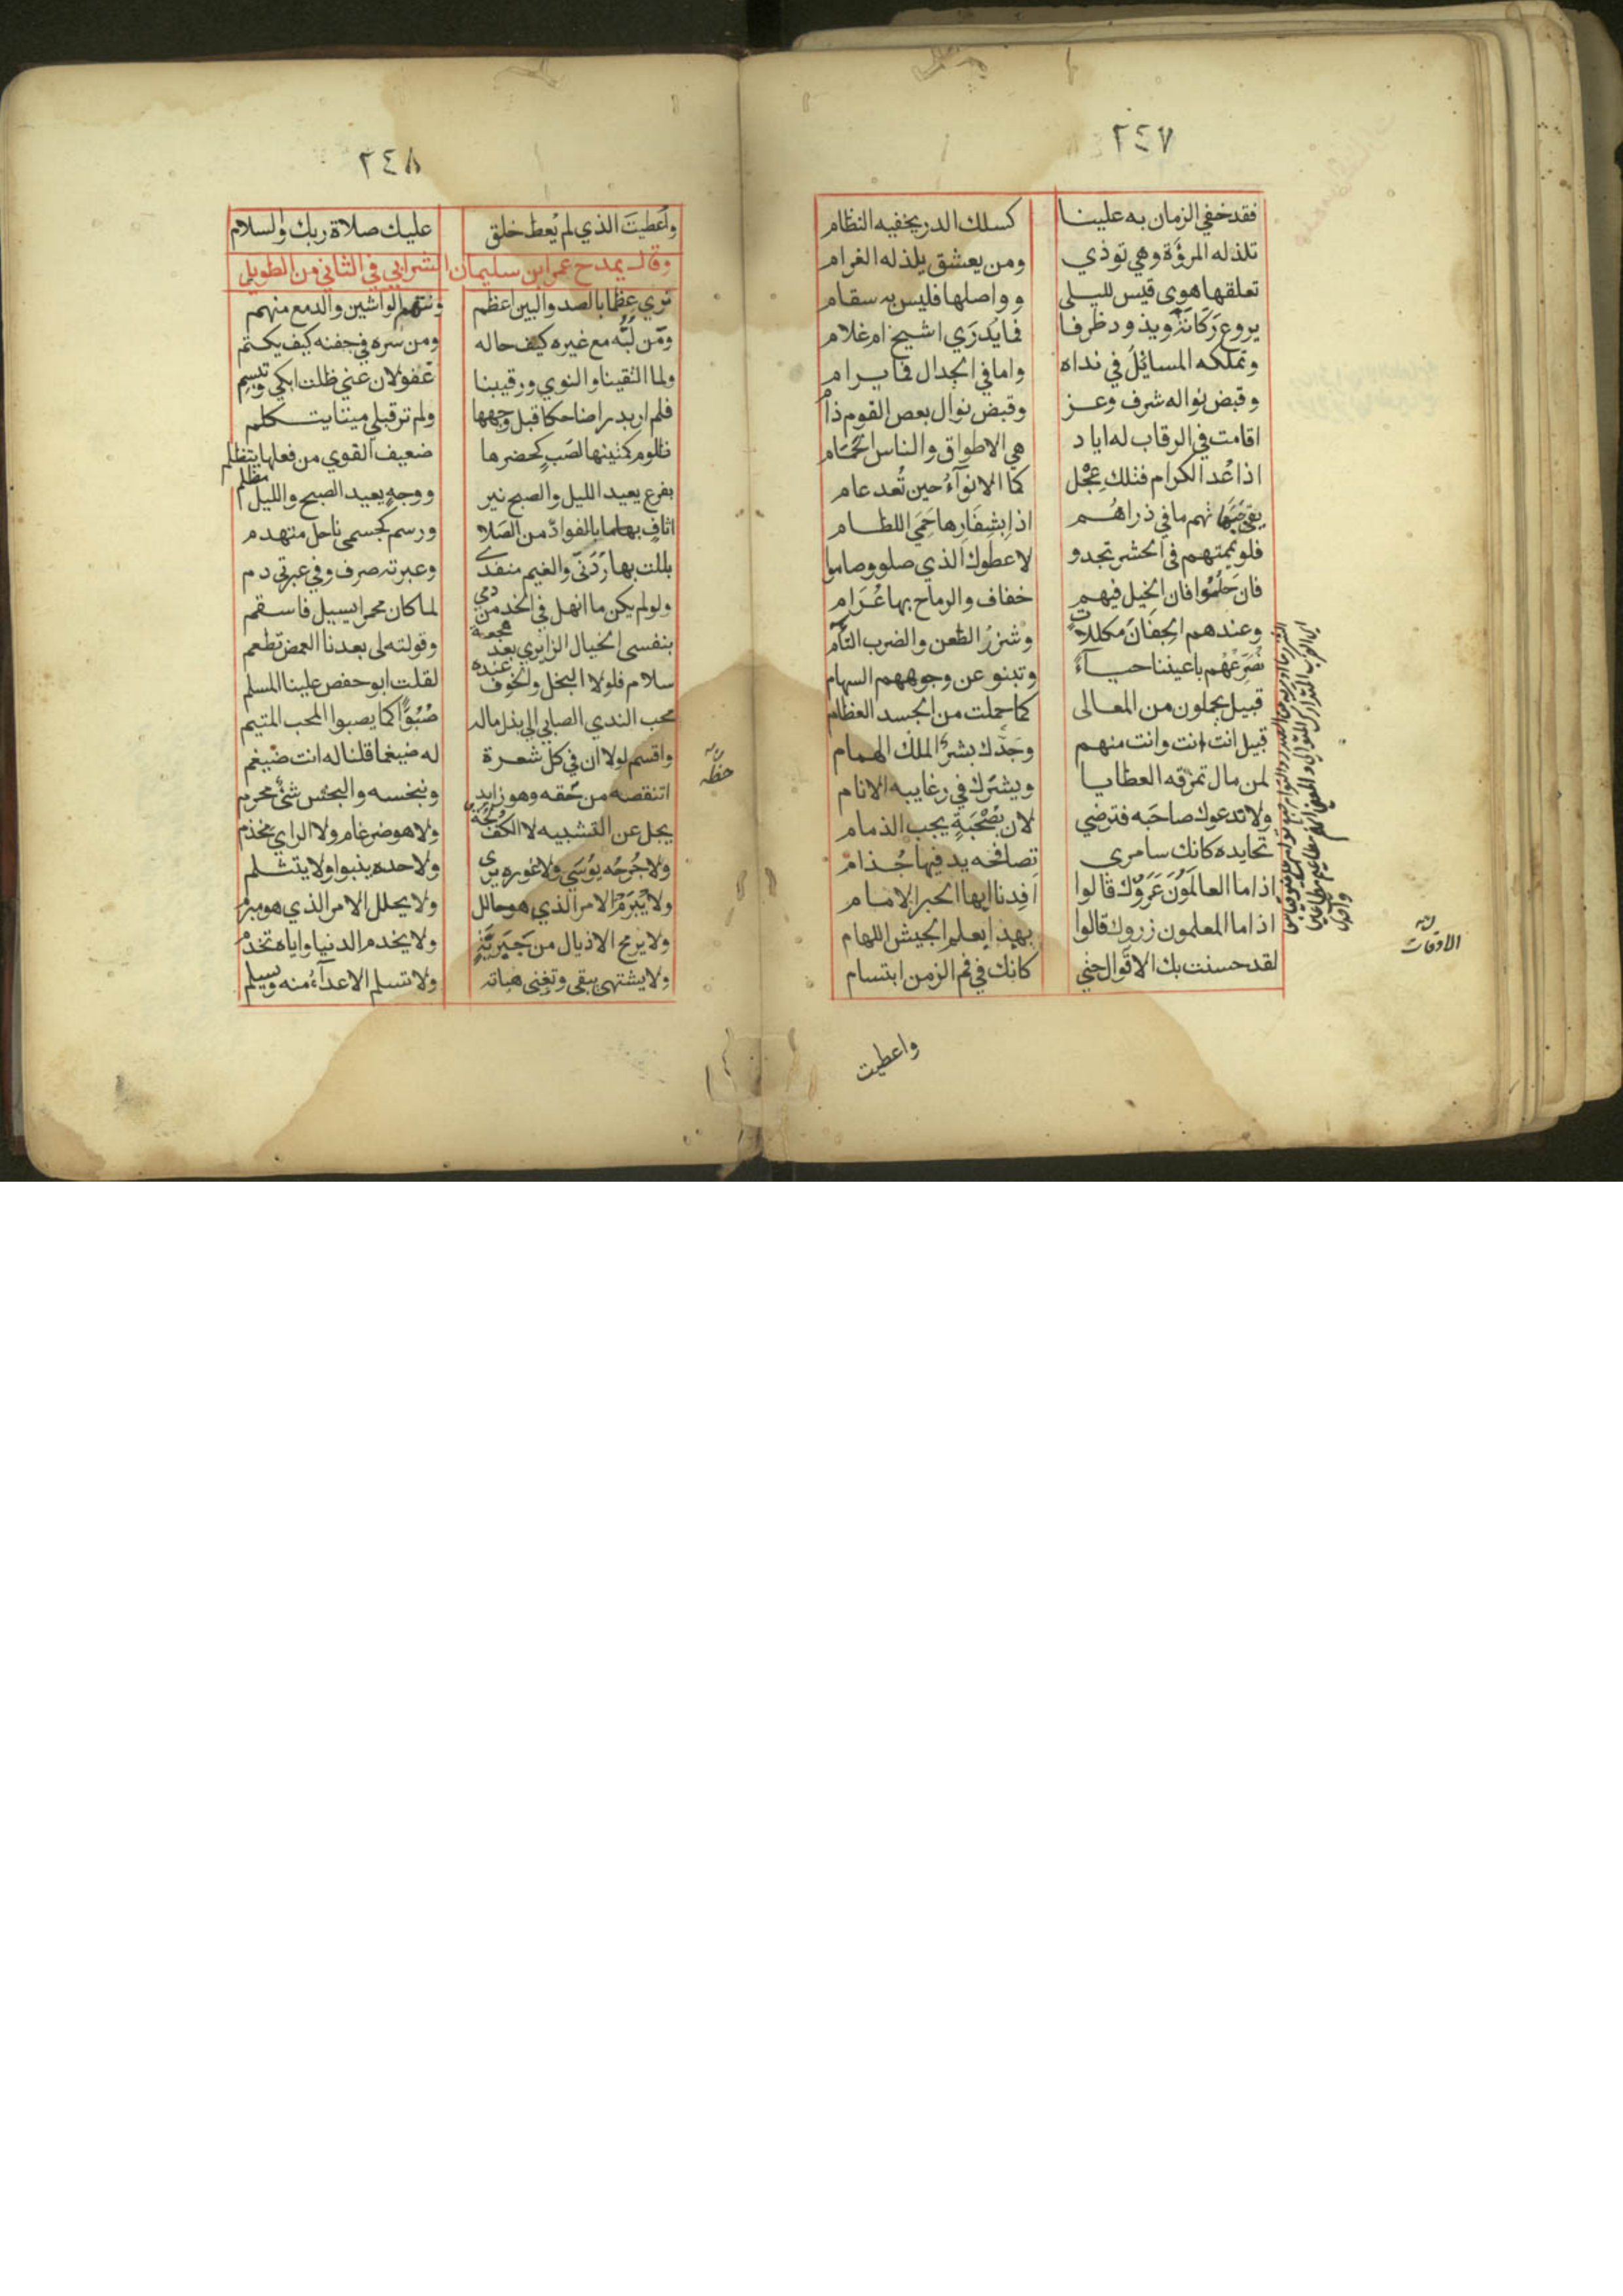 ٢٤٧
فقد خفي الزمان به علينا كسلك الدر يخفيه النظام
تلذ له المرؤة وهي توذي ومن يعشق يلذ له الغرام
تعلقها هوي قيس لليلى وواصلها فليس به سقام
يروع ركانة ويذود ظرفا فما يُدرَي اشيخ ام غلام
وتملكه المسائل في نداه واما في الجدال فما يرام
وقبض نواله شرف وعز وقبض نوال بعض القوم ذام
اقامت في الرقاب له اياد هي الاطواق والناس الحمام
اذا عُد الكرام فتلك عِجْل كما الانوآءُ حين تُعد عام
يقي جبهاتهم ما في ذراهُم اذا بشِفَارِها حَمَيَ اللطام
فلو يممتهم في الحشر تجدو لاعطوك الذي صلو وصاموا
فان حَلُمُوا فان الخيل فيهم خفاف والرماح بها عُرَام
وعندهم الجِفَانَ مكللاتٍ وشزرُ الطعن والضرب التآم
نُصَرِّعُهُم باعيننا حيآءً وتنبو عن وجوههم السهام
قبيل يحملون من المعالى كما حملت من الجسد العظام
قبيل انت انت وانت منهم وجَدّك بشرٌ الملك الهمام
لمن مال تمزقه العطايا ويشرك في رغايبه الانام
ولا ندعوك صاحبه فترضي لان بصُحْبَةٍ يجب الذمام
تحايده كانك سامري تصافحه يد فيها جُذام
اذا ما العالَمُونَ عَرَوْك قالوا افِدنا ايها الحبر الامام
اذا ما المعلمون زروك قالوا بهذا يعلم الجيش اللهام
لقد حسنت بك الاقوال حتي كانك في فم الزمن ابتسام
الاوقات
واعطيت
٢٤٨
واَعطيتَ الذي لم يُعط خلق عليك صلاة ربك والسلام
وقال يمدح عمر ابن سليمان الشرابي في الثاني من الطويل
نري عِظما بالصد والبين اعظم ونتهم الواشين والدمع منهم
ومَن لُبُّه مع غيره كيف حاله ومن سُره في جفنه كيف يكتم
ولما التقينا والنوي ورقيبنا غفولان عني ظلت ابكي وتبسم
فلم ار بدرا ضاحكا قبل وجهها ولم تر قبلي ميتا يتكلم
ظلوم كمتنيها لصَب كحضرها ضعيف القوي من فعلها يتظلم
بفرع يعيد الليل والصبح نير ووجهٍ يعيد الصبح والليل مظلم
اثافٍ بها ما بالفوادّ من الصَلا ورسم كجسمي ناحل متهدم
بللت بها رُدَنَيّ والغيم منفدي وعبرته صرف وفي عبرتي دم
ولو لم يكن ما انهل في الخد من دمي لما كان محمرا يسيل فاسقم
بنفسي الخيال الزايري بعد هجعة وقولته لي بعدنا الغمض تطعم
سلام فلولا البخل والخوف عنده لقلت ابو حفص علينا المسلم
محب الندي الصابي الي بذل ماله صُبُوّاً كما يصبوا المحب المتيم
واقسم لولا ان في كل شعرة له ضيغما قلنا له انت ضيغم
اتنقصه من حَقه وهو زايد ونبخسه والبخس شئ محرم
يجل عن التشبيه لا الكف لُجّة ولا هو ضرغام ولا الراي مخذم
ولا جُرحُه يوسَي ولا غوره يرى ولا حده ينبوا ولا يتثلم
ولا يُبرَمُ الامر الذي هو حالل ولا يحلل الامر الذي هو مبرم
ولا يرمح الاذيال من جَبَريَّةٍ ولا يخدم الدنيا واياه تخدم
ولا يشتهي يبقي وتفني هباته ولا تسلم الاعدآءُ منه ويسلم
حظه